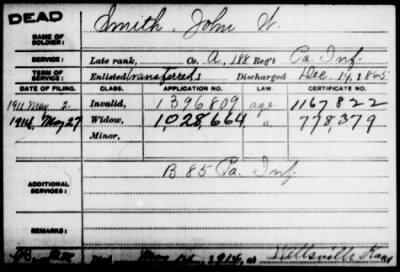 DEAD
Smith, John W.
NAME OF SOLDIER:
SERVICE: Late rank, Co. A, 188 Reg't Pa. Inf.
TERM OF SERVICE: Enlisted transferred, Discharged Dec. 14, 1865
DATE OF FILING. CLASS. APPLICATION NO. LAW. CERTIFICATE NO.
1911 May 2 Invalid, 1396809 age 1167822
1914, May 27 Widow, 1,028,664 778,379
Minor,
ADDITIONAL SERVICES: B 85 Pa. Inf.
REMARKS:
1914, at Wellsville Kans